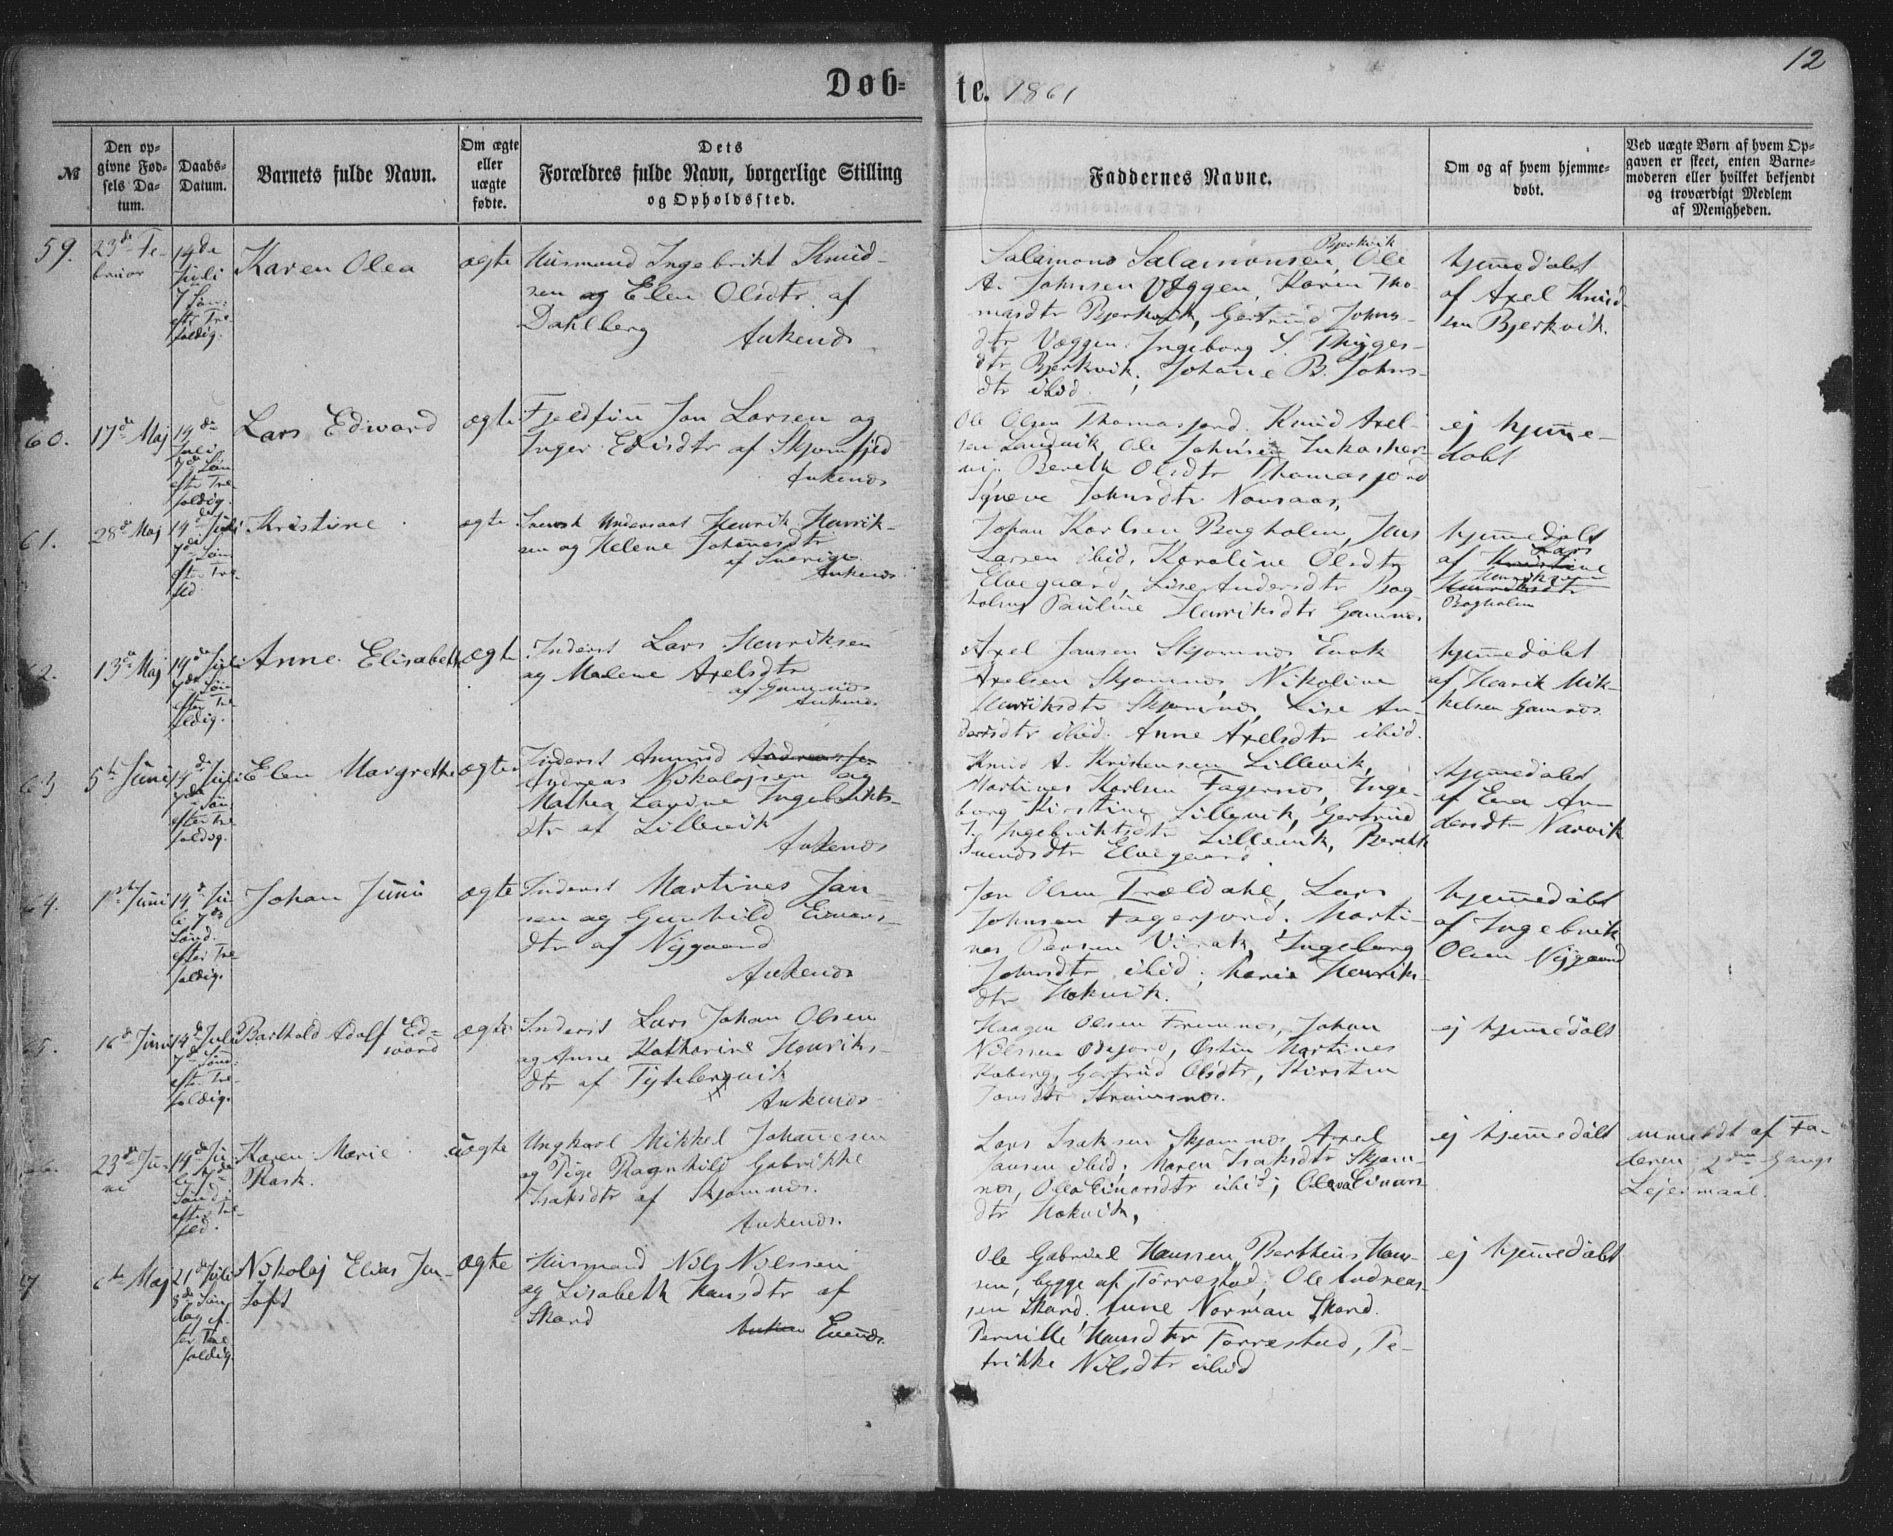 12
Døb=
te. 1861
№
Den op-
givne Fød-
sels Da-
tum.
Daabs-
Datum.
Barnets fulde Navn.
Om ægte
eller
uægte
fødte.
Dets
Forældres fulde Navn, borgerlige Stilling
og Opholdssted.
Faddernes Navne.
Om og af hvem hjemme-
døbt.
Ved uægte Børn af hvem Op-
gaven er skeet, enten Barne-
moderen eller hvilket bekjendt
og troværdigt Medlem
af Menigheden.
59.
23de Fe-
bruar
14de
Juli
7 Søn.
efter Tre-
foldig.
Karen Olea
ægte
Husmand Ingebrikt Knud-
sen og Elen Olsdtr. af
Dahlberg
Ankenæs
Bjerkvik
Salamons Salamonsen, Ole
A. Johnsen Væggen, Karen Tho-
masdtr Bjerkvik, Gertrud Johns-
dtr Væggen. Ingeborg S. Thyges-
dtr Bjerkvik. Johane B. Johns-
dtr ibid.
hjemedøbt
af Axel Knud-
sen Bjerkvik.
60.
17de Maj
14de
Juli
7de Søn
efter Tre-
foldig.
Lars Edward
ægte
Fjeldfin Jon Larsen og
Inger Edisdtr af Skjomfjed
Ankenæs
Ole Olsen Thomasjord. Knud Axel-
sen Sandvik, Ole Johnsen
Bereth Olsdtr Thomasjord
Johnsdtr
ej hjemme-
døbt
61.
28de Maj
14de Juli
7de Søn
efter Tre-
fld
Kristine
ægte
Svensk Undersaat Henrik Henrik-
sen og Helene Johanesdtr
af Sverige
Ankenæs
Johan Karlsen Bogholm, Jens
Larsen ibid, Karoline Olsdtr
Elvegaard, Lise Andersdtr Bog-
holm, Pauline Henriksdtr Gamnes
hjemmedøbt
Lars
af Kristine
Henriksen
Henriksdtr
Bogholm
62.
13de Maj
14de Juli
7de Søn
efter Tre-
foldig.
Anne Elisabeth
ægte
Inderst Lars Henriksen
og Malene Axelsdtr
af Gamnæs
Ankenæs
Axel Jansen Skjomnæs Enok
Axelsen Skjomnæs, Nikoline
Henriksdtr Skjomnæs, Lise An-
dersdtr ibid. Anne Axelsdtr ibid.
hjemmedøbt
af Henrik Mik-
kelsen Gamnæs.
63
5te Juni
14de Juli
7de Søn.
efter Tre
foldig.
Elen Margrethe
ægte
Inderst Amund Andreas Jo-
Andreas Nikolajsen og
Mathea Lavine Ingebrikts-
dtr af Lillevik
Ankenæs
Knud A. Kristensen Lillevik,
Martines Karlsen Fagernæs, Inge-
borg Kirstine Lillevik, Gertrud
J. Ingebriktsdtr Lillevik, Bereth
Svendsdtr Elvegaard
hjemmedøbt
af Ena An-
dersdtr Narvik
64.
1ste Juni
14de Ju-
li 7de
Sønd.
efter Tre
foldig.
Johan Juni
ægte
Inderst Martines Jan-
sen og Gunhild Einars-
dtr af Nygaard
Ankenæs
Jon Olsen Trældahl, Lars
Johnsen Fagerjord. Marti-
nes Persen Virak, Ingeborg
Johnsdtr ibid; Karen Henriks-
dtr Hokvik.
hjemmedøbt
af Ingebrik
Olsen Nygaard
65.
16de Juni
14de Juli
7de Sønd.
efter Tre-
foldig.
Barthold Adolf Ed-
ward
ægte
Inderst Lars Johan Olsen
og Anne Katharine Henriks-
dtr af Tyteberqvik
Ankenæs
Haagen Olsen Fremnæs, Johan
Nilssen Øsejord, Østen Martines
Koberg, Gertrud Olsdtr, Kirsten
Jonsdtr Strømsnæs.
ej hjemmedøbt
66.
23de Ju-
ni
14de Ju-
li 7de
Sønd.
efter Tre
fld.
Karen Marie
Rask.
uægte
Ungkarl Mikkel Johanesen
og Pige Ragnhild Gabrikke
Isaksdtr af Skjomnæs.
Ankenæs.
Lars Isaksen Skjomnæs, Axel
Jansen ibid; Maren Isaksdtr Skjom-
næs, Olea Einarsdtr ibid; Oleva Einars-
dtr Hokvik,
ej hjemmedøbt
anmeldt af Fa-
deren; 2den Gangs
Lejermaal.
67
6te Maj
21de Juli
8de Søn-
dag ef-
ter Tre
foldig.
Nikolaj Elias Jen-
toft
ægte
Husmand Nils Nilssen
og Lisabeth Hansdtr af
Skard
Anken Evenæs.
Ole Gabriel Hanssen, Bertheus Han-
sen, bygge af Tørrestad; Ole Andreas-
sen Skard. Anne Norman Skard.
Pernille Hansdtr Tørrestad, Pe-
trikke Nilsdtr ibid
ej hjemmedøbt